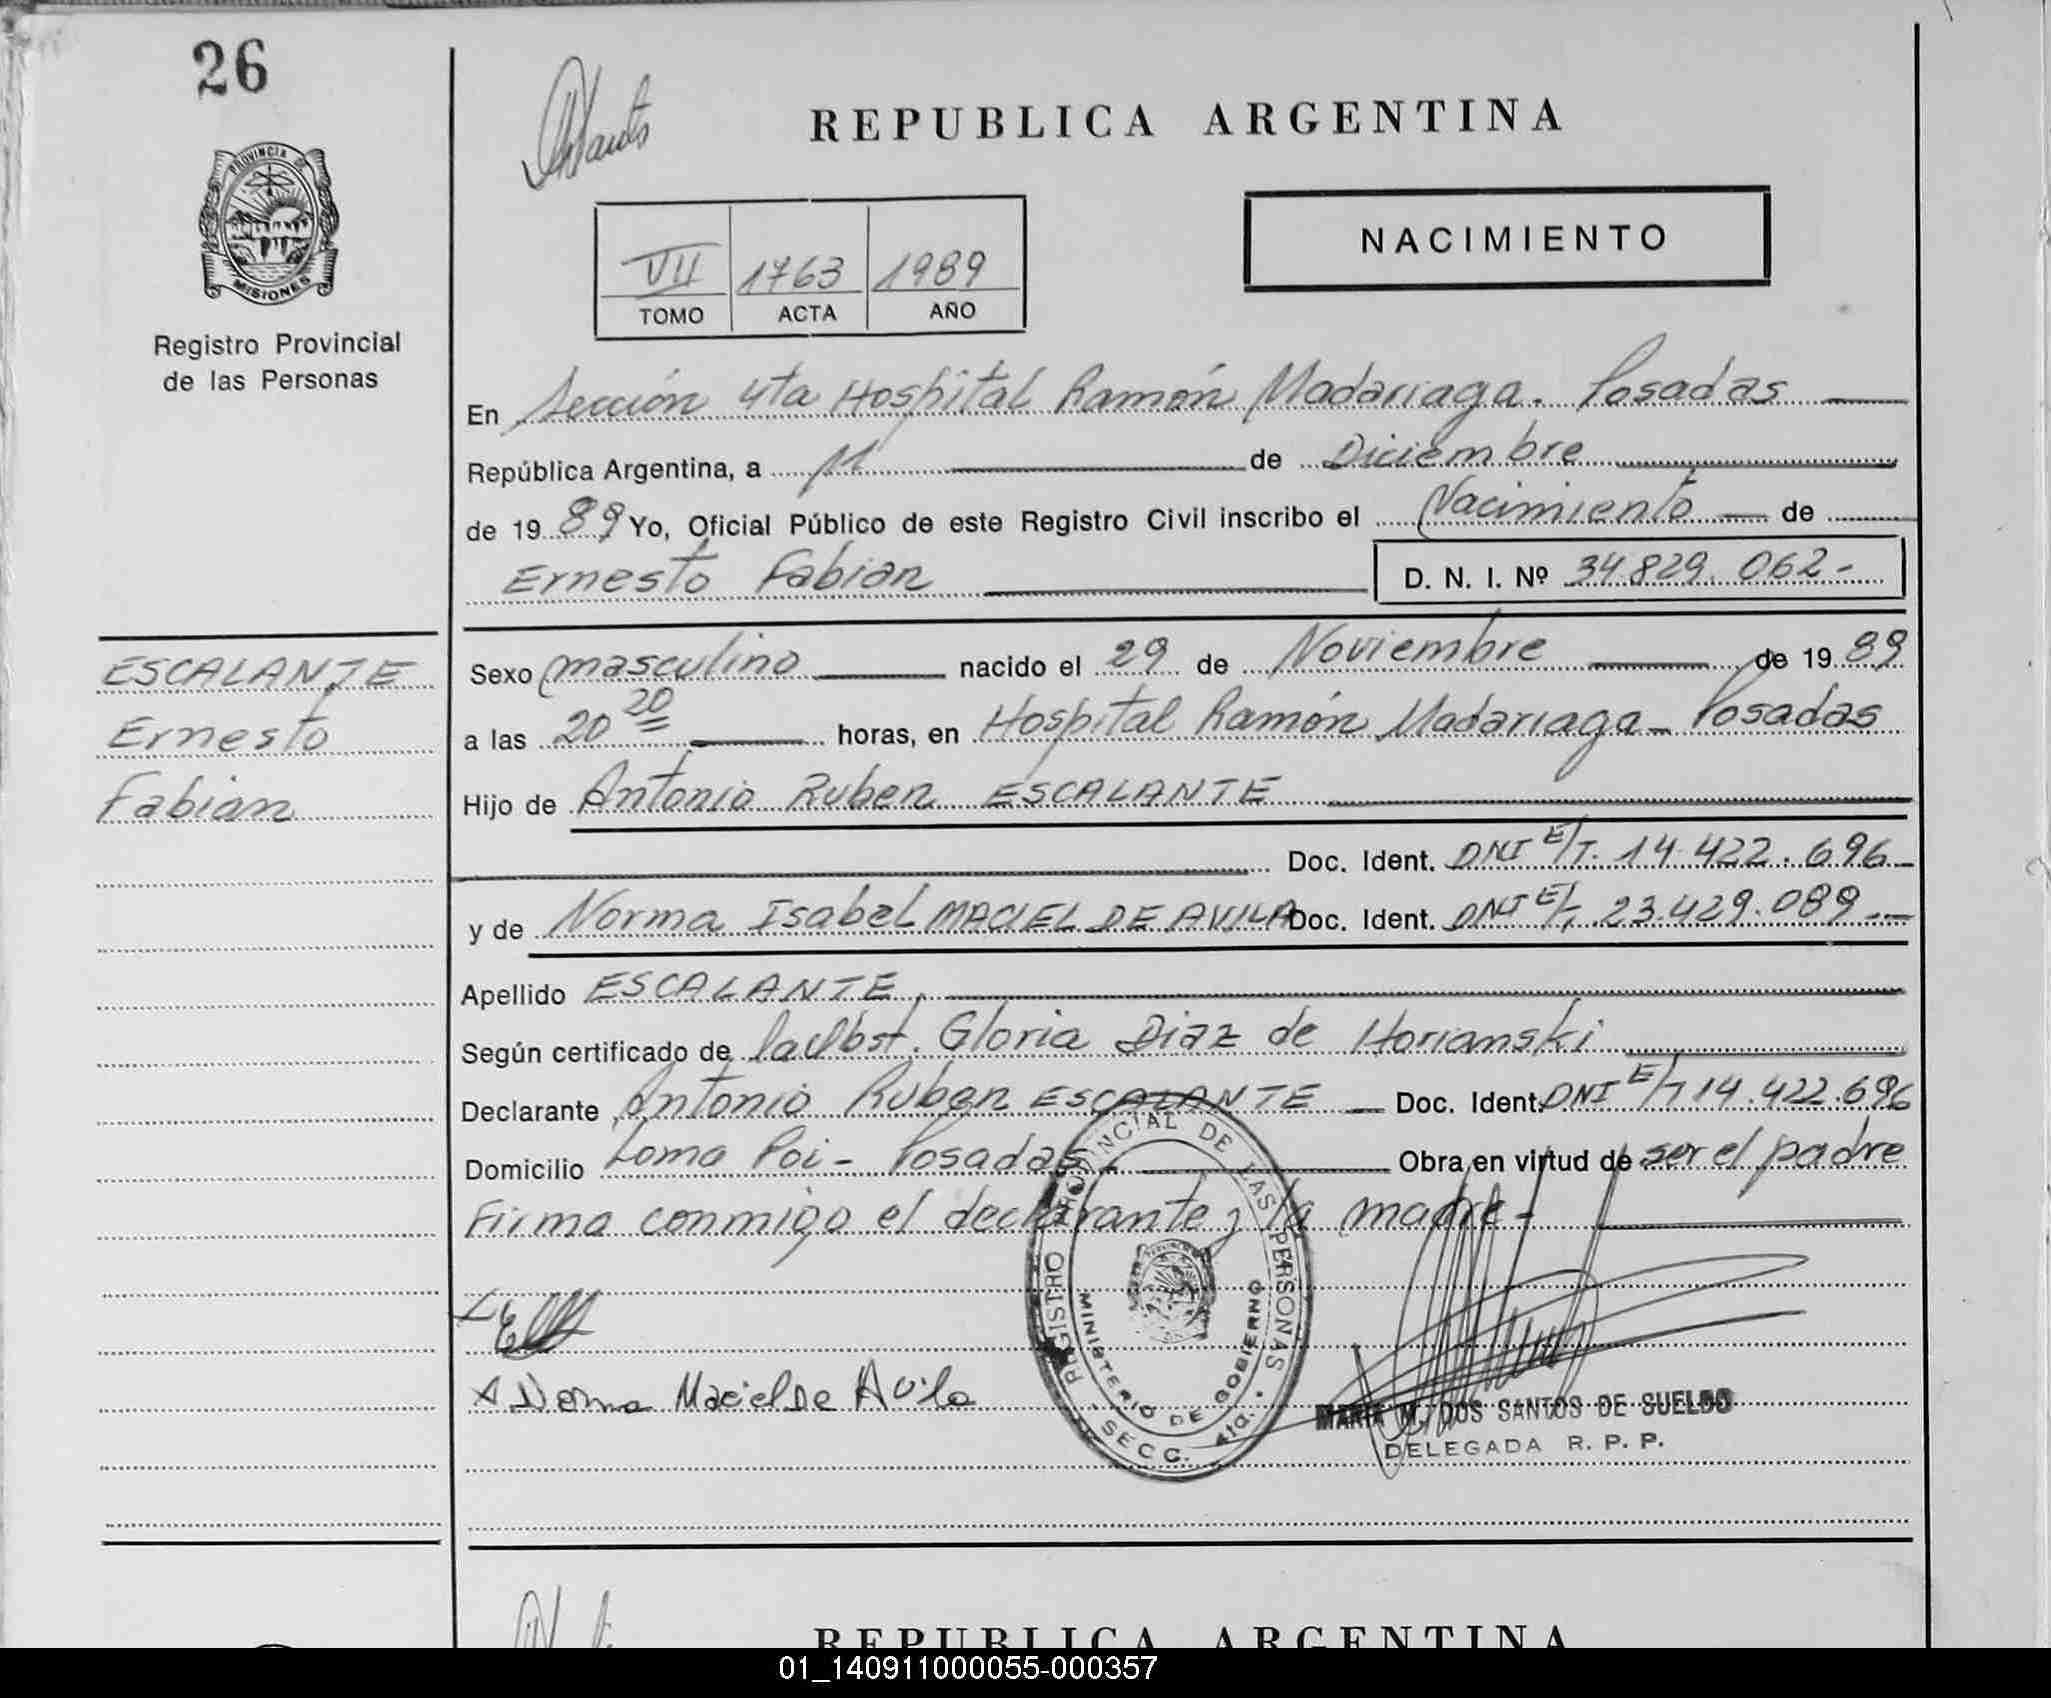 26
PROVINCIA DE
MISIONES
Registro Provincial
de las Personas
REPUBLICA ARGENTINA
VII 1763 1989
TOMO ACTA AÑO
NACIMIENTO
En Sección 4ta Hospital Ramón Madariaga. Posadas
República Argentina, a 11 de Diciembre
de 1989 Yo, Oficial Público de este Registro Civil inscribo el Nacimiento de
Ernesto Fabian D. N. I. Nº 34.829.062-
ESCALANTE
Ernesto
Fabian
Sexo masculino nacido el 29 de Noviembre de 1989
a las 20 20 horas, en Hospital Ramón Madariaga - Posadas
Hijo de Antonio Ruben ESCALANTE
Doc. Ident. DNI E/T. 14.422.696
y de Norma Isabel MACIEL DE AVILA Doc. Ident. DNI E/T. 23.429.089
Apellido ESCALANTE
Según certificado de la Obst. Gloria Diaz de Horianski
Declarante Antonio Ruben ESCALANTE Doc. Ident. DNI E/T 14.422.696
Domicilio Loma Poi - Posadas Obra en virtud de ser el padre
Firma conmigo el declarante y la madre-
REGISTRO PROVINCIAL DE LAS PERSONAS
MINISTERIO DE GOBIERNO
SECC. 4ta.
x Norma Maciel De Avila
MARIA M. DOS SANTOS DE SUELDO
DELEGADA R. P. P.
REPUBLICA ARGENTINA
01_140911000055-000357